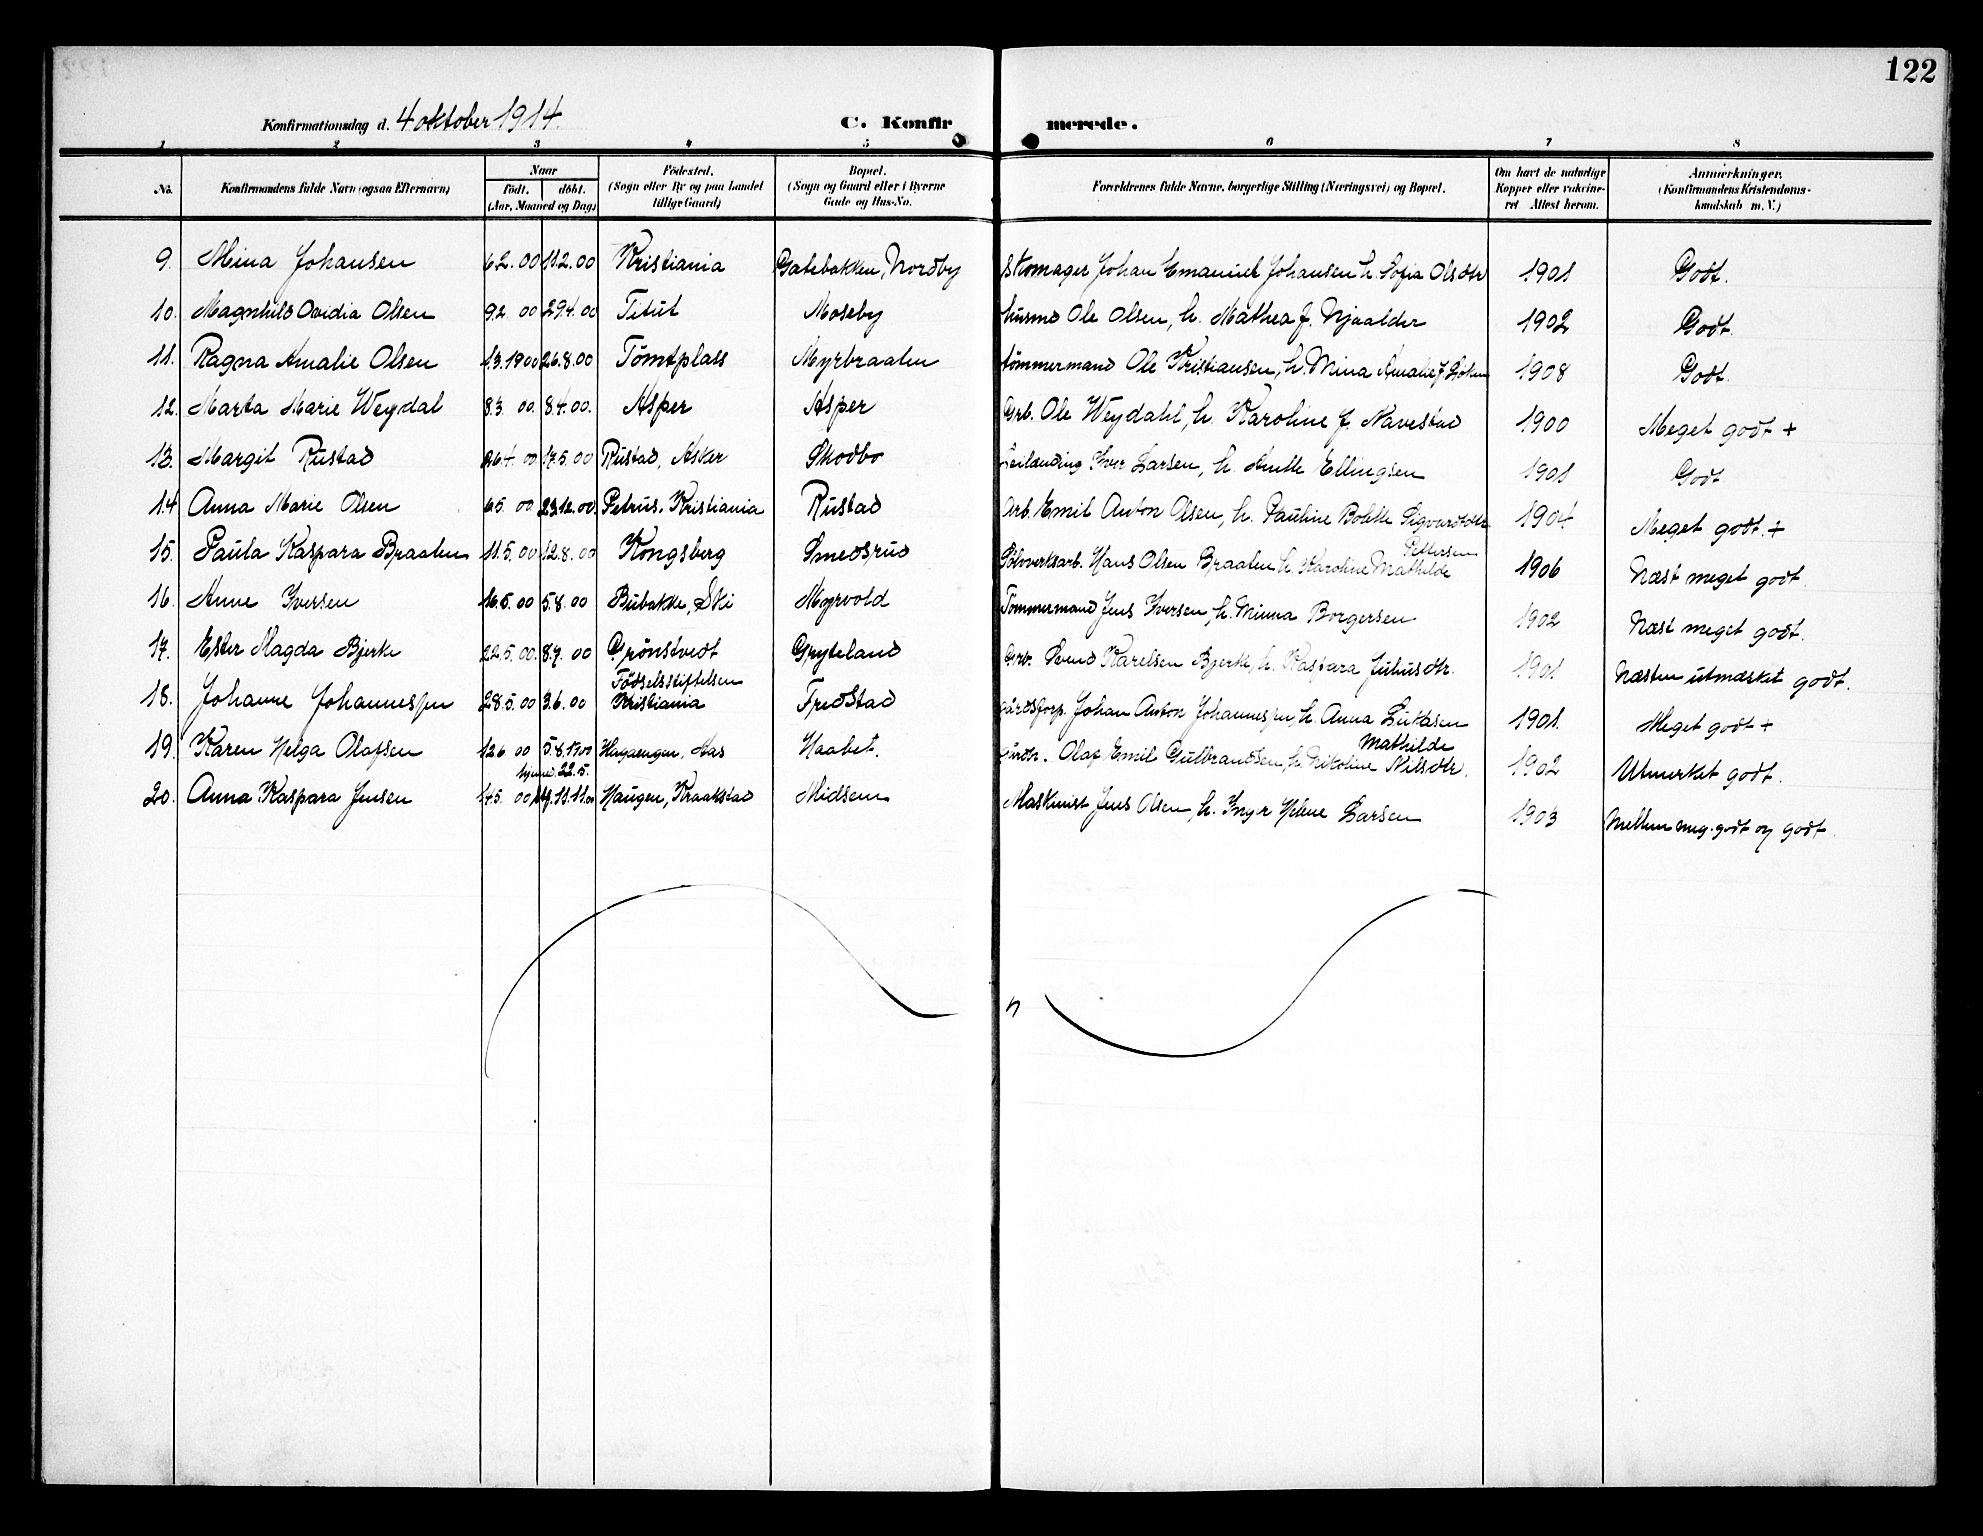 122
Konfirmationsdag d. 4 oktober 1914.
C. Konfirmerede.
1 2 3 4 5 6 7 8
No. Konfirmandens fulde Navn (ogsaa Efternavn) Naar født. døbt. (Aar, Maaned og Dag) Fødested. (Sogn eller By og paa Landet tillige Gaard) Bopæl. (Sogn og Gaard eller i Byerne Gade og Hus-No. Forældrenes fulde Navne, borgerlige Stilling (Næringsvei) og Bopæl. Om havt de naturlige Kopper eller vakcineret Attest herom. Anmærkninger. (Konfirmandens Kristendomskundskab m. V.)
9. Mina Johansen 6.2.00 11.2.00 Kristiania Gatebakken, Nordby Skomager Johan Emanuel Johansen h. Sofia Olsdtr 1901 Godt.
10. Magnhild Ovidia Olsen 9.2.00 29.4.00 Titut Moseby husmd Ole Olsen, h. Mathea f. Njaalder 1902 Godt.
11. Ragna Amalie Olsen 1.3.1900 26.8.00 Tömtplass Myrbraaten tömmermand Ole Kristiansen, h. Mina Amalie f. 1908 Godt.
12. Marta Marie Weydal 8.3.00 8.4.00. Asper Asper Grb. Ole Weydahl, h. Karoline f. Navestad 1900 Meget godt +
13. Margit Rustad 26.4.00 17.5.00 Rustad, Asker Skodbo Leilænding Iver Larsen, h. Anette Ellingsen 1901 Godt
14 Anna Marie Olsen 6.5.00 23.12.00 Petrus. Kristiania Rustad Arb. Emil Anton Olsen, h. Pauline Bolette Sigvardtdtr. 1904 Meget godt. +
15. Paula Kaspara Braaten 11.5.00 12.8.00 Kongsberg Smedsrud Sölvverksarb. Hans Olsen Braaten h. Karoline Mathilde Pettersen 1906 Næst meget godt
16. Anne Iversen 16.5.00 5.8.00 Bubakke, Ski Myrvold Tömmermand Jens Iversen, h. Minna Borgersen 1902 Næst meget godt.
17. Ester Magda Bjerke 22.5.00. 8.7.00 Grönstvedt Gryteland Grb. Svend Karelsen Bjerke, h. Kaspara Juliusdtr. 1901 Næsten utmærket godt.
18. Johanne Johannessen 28.5.00 3.6.00 Födselsstiftelsen Kristiania Fredstad gårdsforp. Johan Anton Johannessen, h. Anna Lukasen 1901. Meget godt +
19. Karen Helga Olafsen 12.6.00 5.8.1900 Hagaengen, Aas Haabet. Olaf Emil Gulbrandsen, h. Nikoline Mathilde Nilsdtr. 1902 Utmerket godt.
20. Anna Kaspara Jensen 14.5.00 hjemme 22.5. 11.11.00 Haugen, Kraakstad Midsem Maskinist Jens Olsen, h. Inger Helene Larsen 1903 Mellem meg. godt og godt.